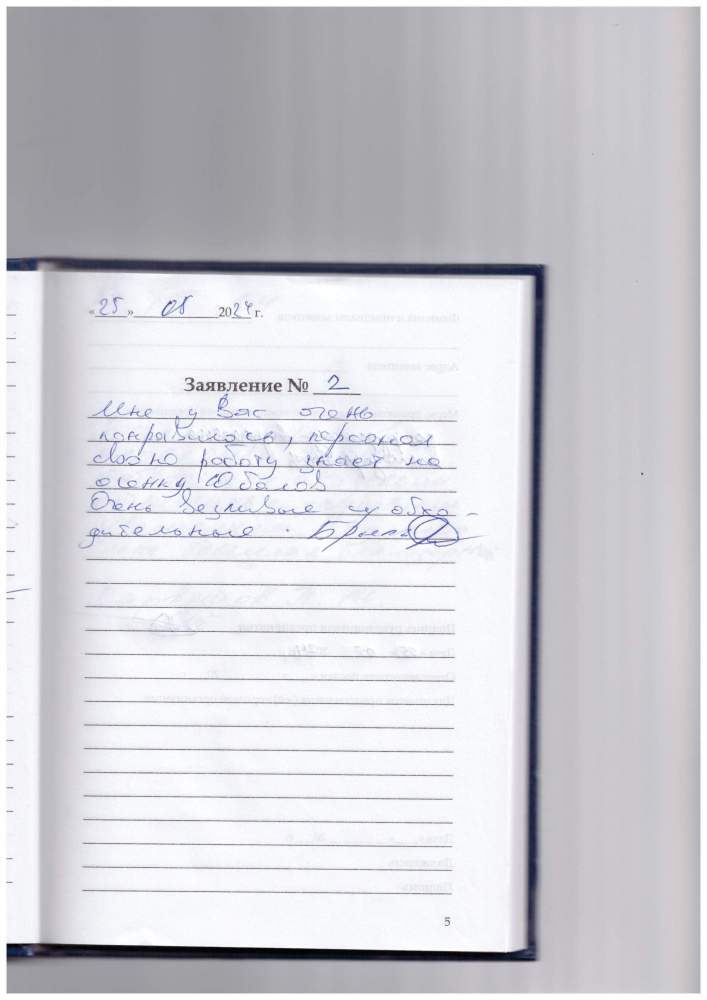 «25» 05 2024 г.
Заявление № 2
Мне у Вас очень
понравилось, персонал
свою работу знает на
оценку 10 балов
Очень везливые и обхо-
дительные.
5